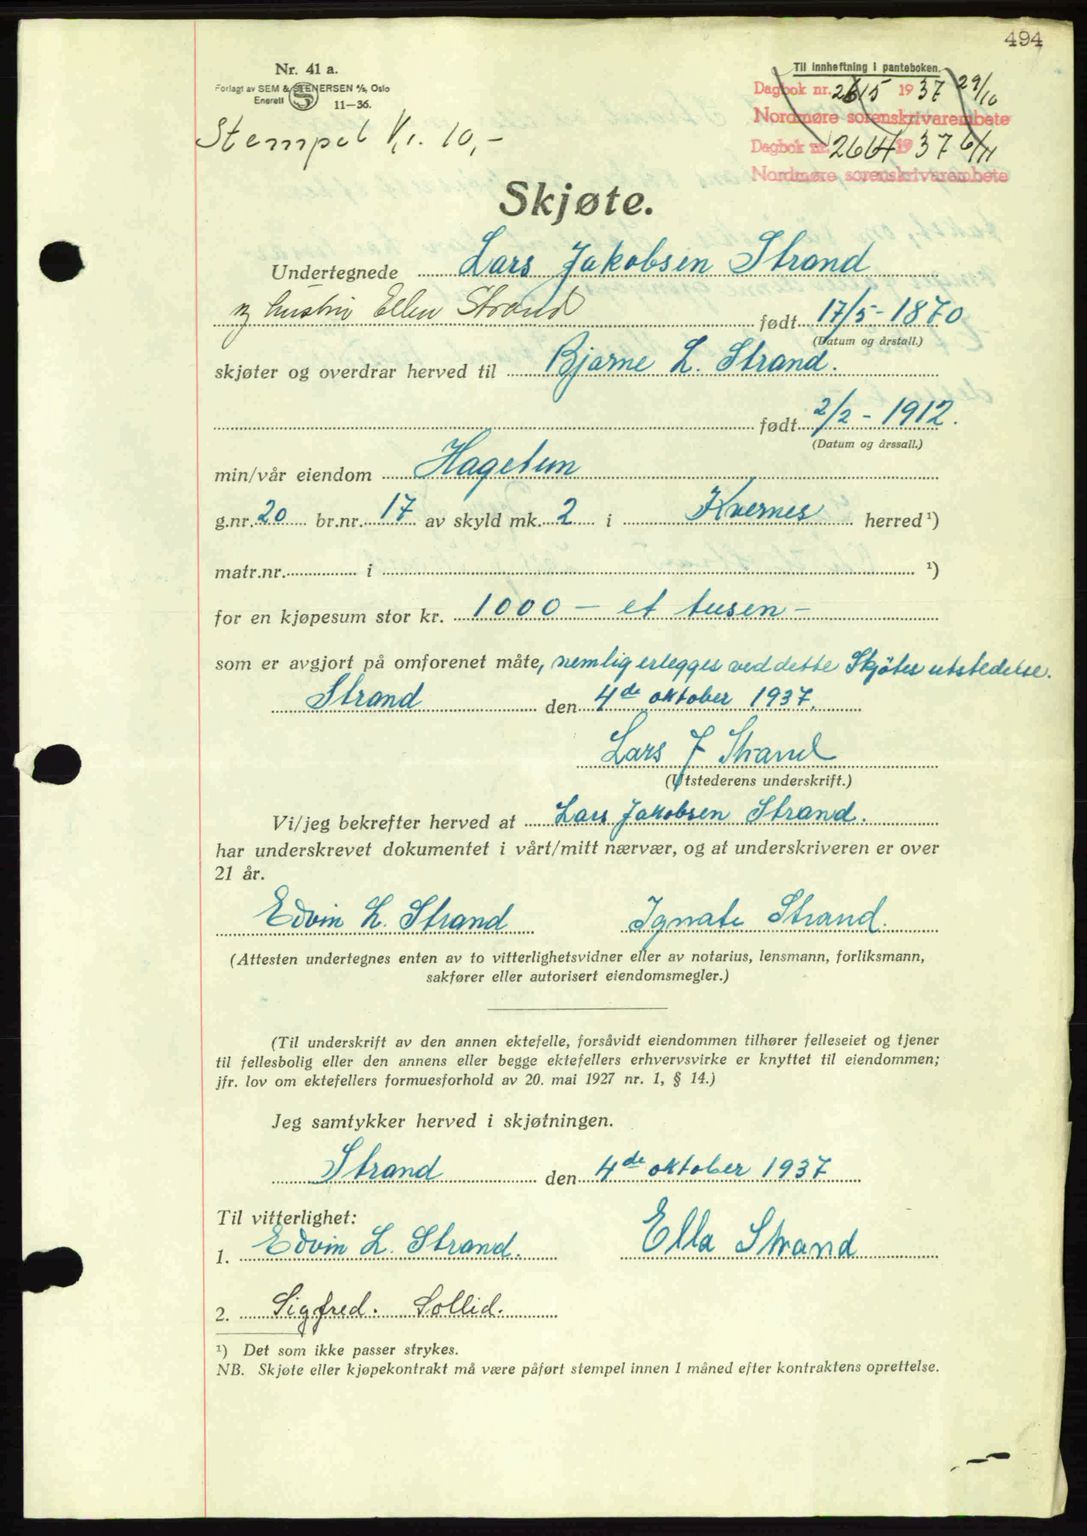 494
Nr. 41 a.
Forlagt av SEM & STENERSEN A/S, Oslo
Enerett S 11-36.
Til innheftning i panteboken.
Dagbok nr. 2615 1937 29/10
Nordmøre sorenskrivarembete
Dagbok nr. 2664 1937 6/11
Nordmøre sorenskrivarembete
Stempel kr. 10,-
Skjøte.
Undertegnede Lars Jakobsen Strand
og hustru Ellen Strand født 17/5-1870
(Datum og årstall.)
skjøter og overdrar herved til Bjarne L. Strand.
født 2/2 - 1912.
(Datum og årssall.)
min/vår eiendom Hagetun
g.nr. 20 br.nr. 17 av skyld mk. 2 i Kvernes herred ¹)
matr.nr. i ¹)
for en kjøpesum stor kr. 1000 — et tusen —
som er avgjort på omforenet måte, nemlig erlegges ved dette Skjötes utstedelse.
Strand den 4de oktober 1937.
Lars J Strand
(Utstederens underskrift.)
Vi/jeg bekrefter herved at Lars Jakobsen Strand.
har underskrevet dokumentet i vårt/mitt nærvær, og at underskriveren er over
21 år.
Edvin L. Strand Ignate Strand.
(Attesten undertegnes enten av to vitterlighetsvidner eller av notarius, lensmann, forliksmann,
sakfører eller autorisert eiendomsmegler.)
(Til underskrift av den annen ektefelle, forsåvidt eiendommen tilhører felleseiet og tjener
til fellesbolig eller den annens eller begge ektefellers erhvervsvirke er knyttet til eiendommen;
jfr. lov om ektefellers formuesforhold av 20. mai 1927 nr. 1, § 14.)
Jeg samtykker herved i skjøtningen.
Strand den 4de oktober 1937
Til vitterlighet:
1. Edvin L. Strand. Ella Strand
2. Sigfred. Sollid.
¹) Det som ikke passer strykes.
NB. Skjøte eller kjøpekontrakt må være påført stempel innen 1 måned efter kontraktens oprettelse.